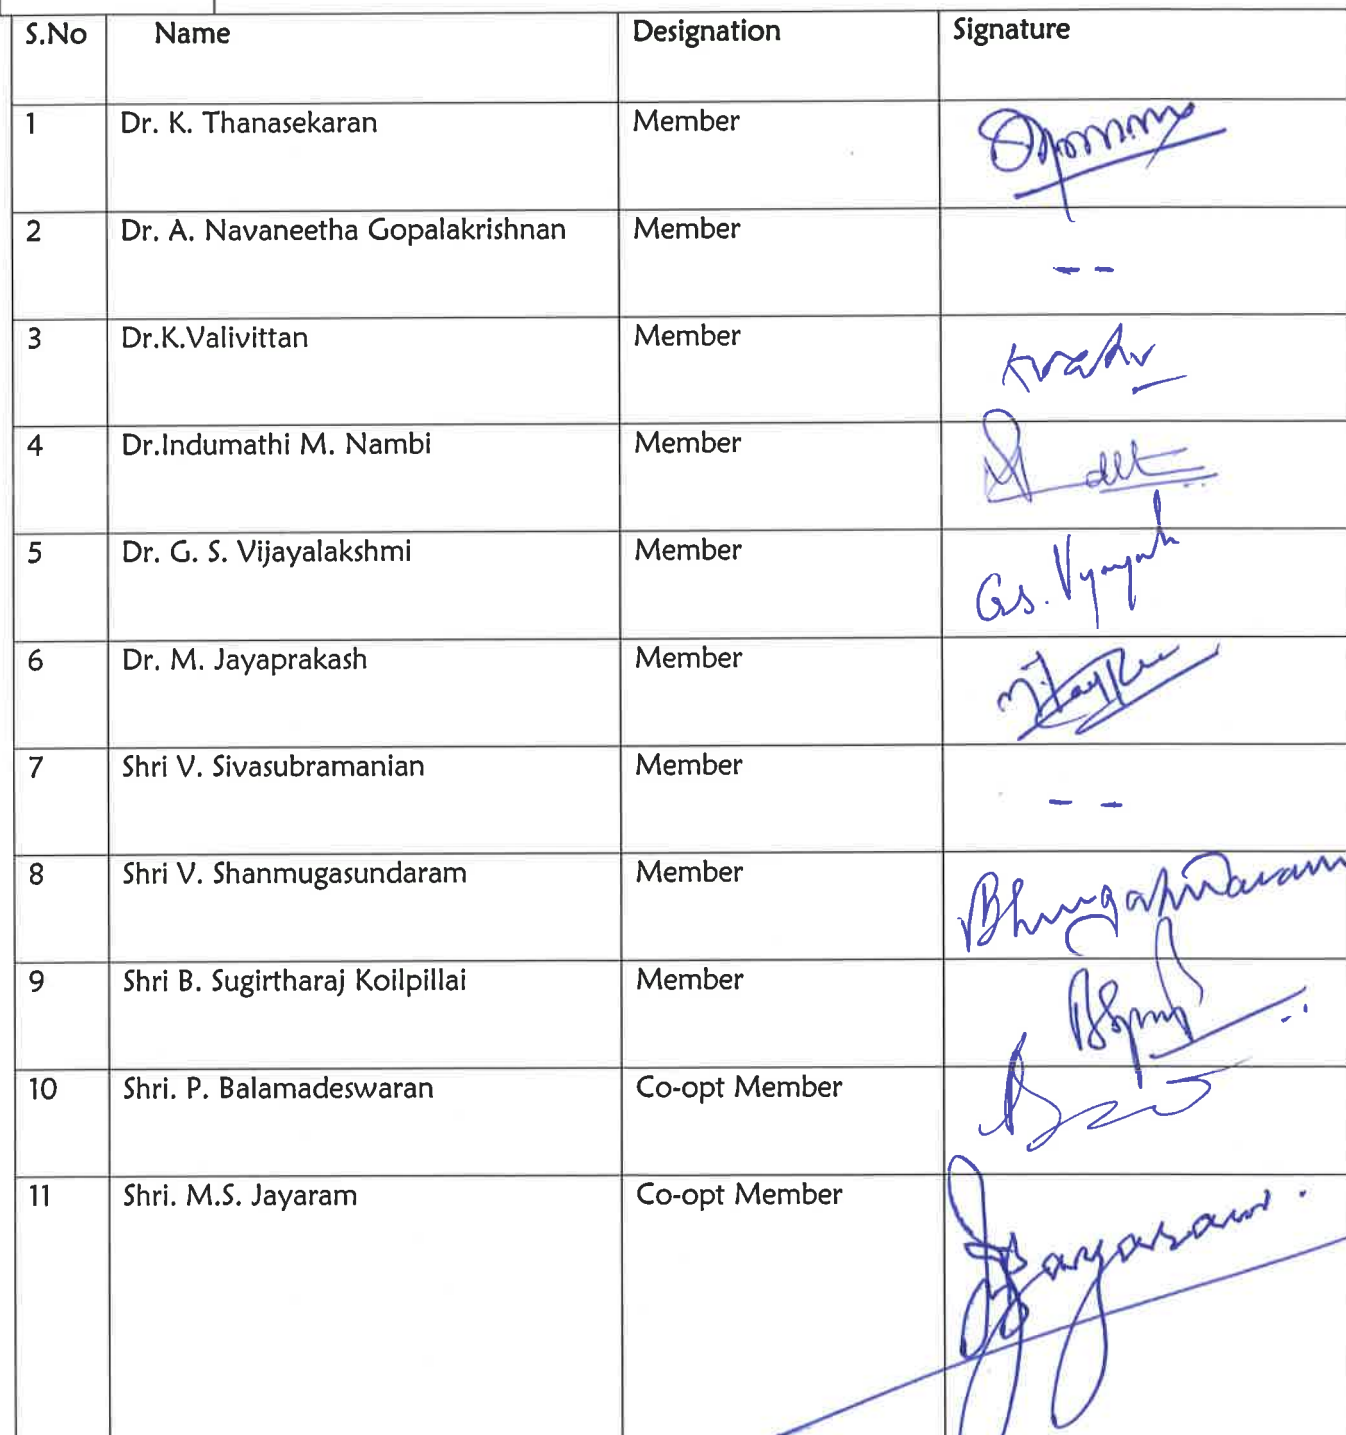 S.No Name Designation Signature
1 Dr. K. Thanasekaran Member
2 Dr. A. Navaneetha Gopalakrishnan Member - -
3 Dr.K.Valivittan Member
4 Dr.Indumathi M. Nambi Member
5 Dr. G. S. Vijayalakshmi Member
6 Dr. M. Jayaprakash Member
7 Shri V. Sivasubramanian Member - -
8 Shri V. Shanmugasundaram Member
9 Shri B. Sugirtharaj Koilpillai Member
10 Shri. P. Balamadeswaran Co-opt Member
11 Shri. M.S. Jayaram Co-opt Member